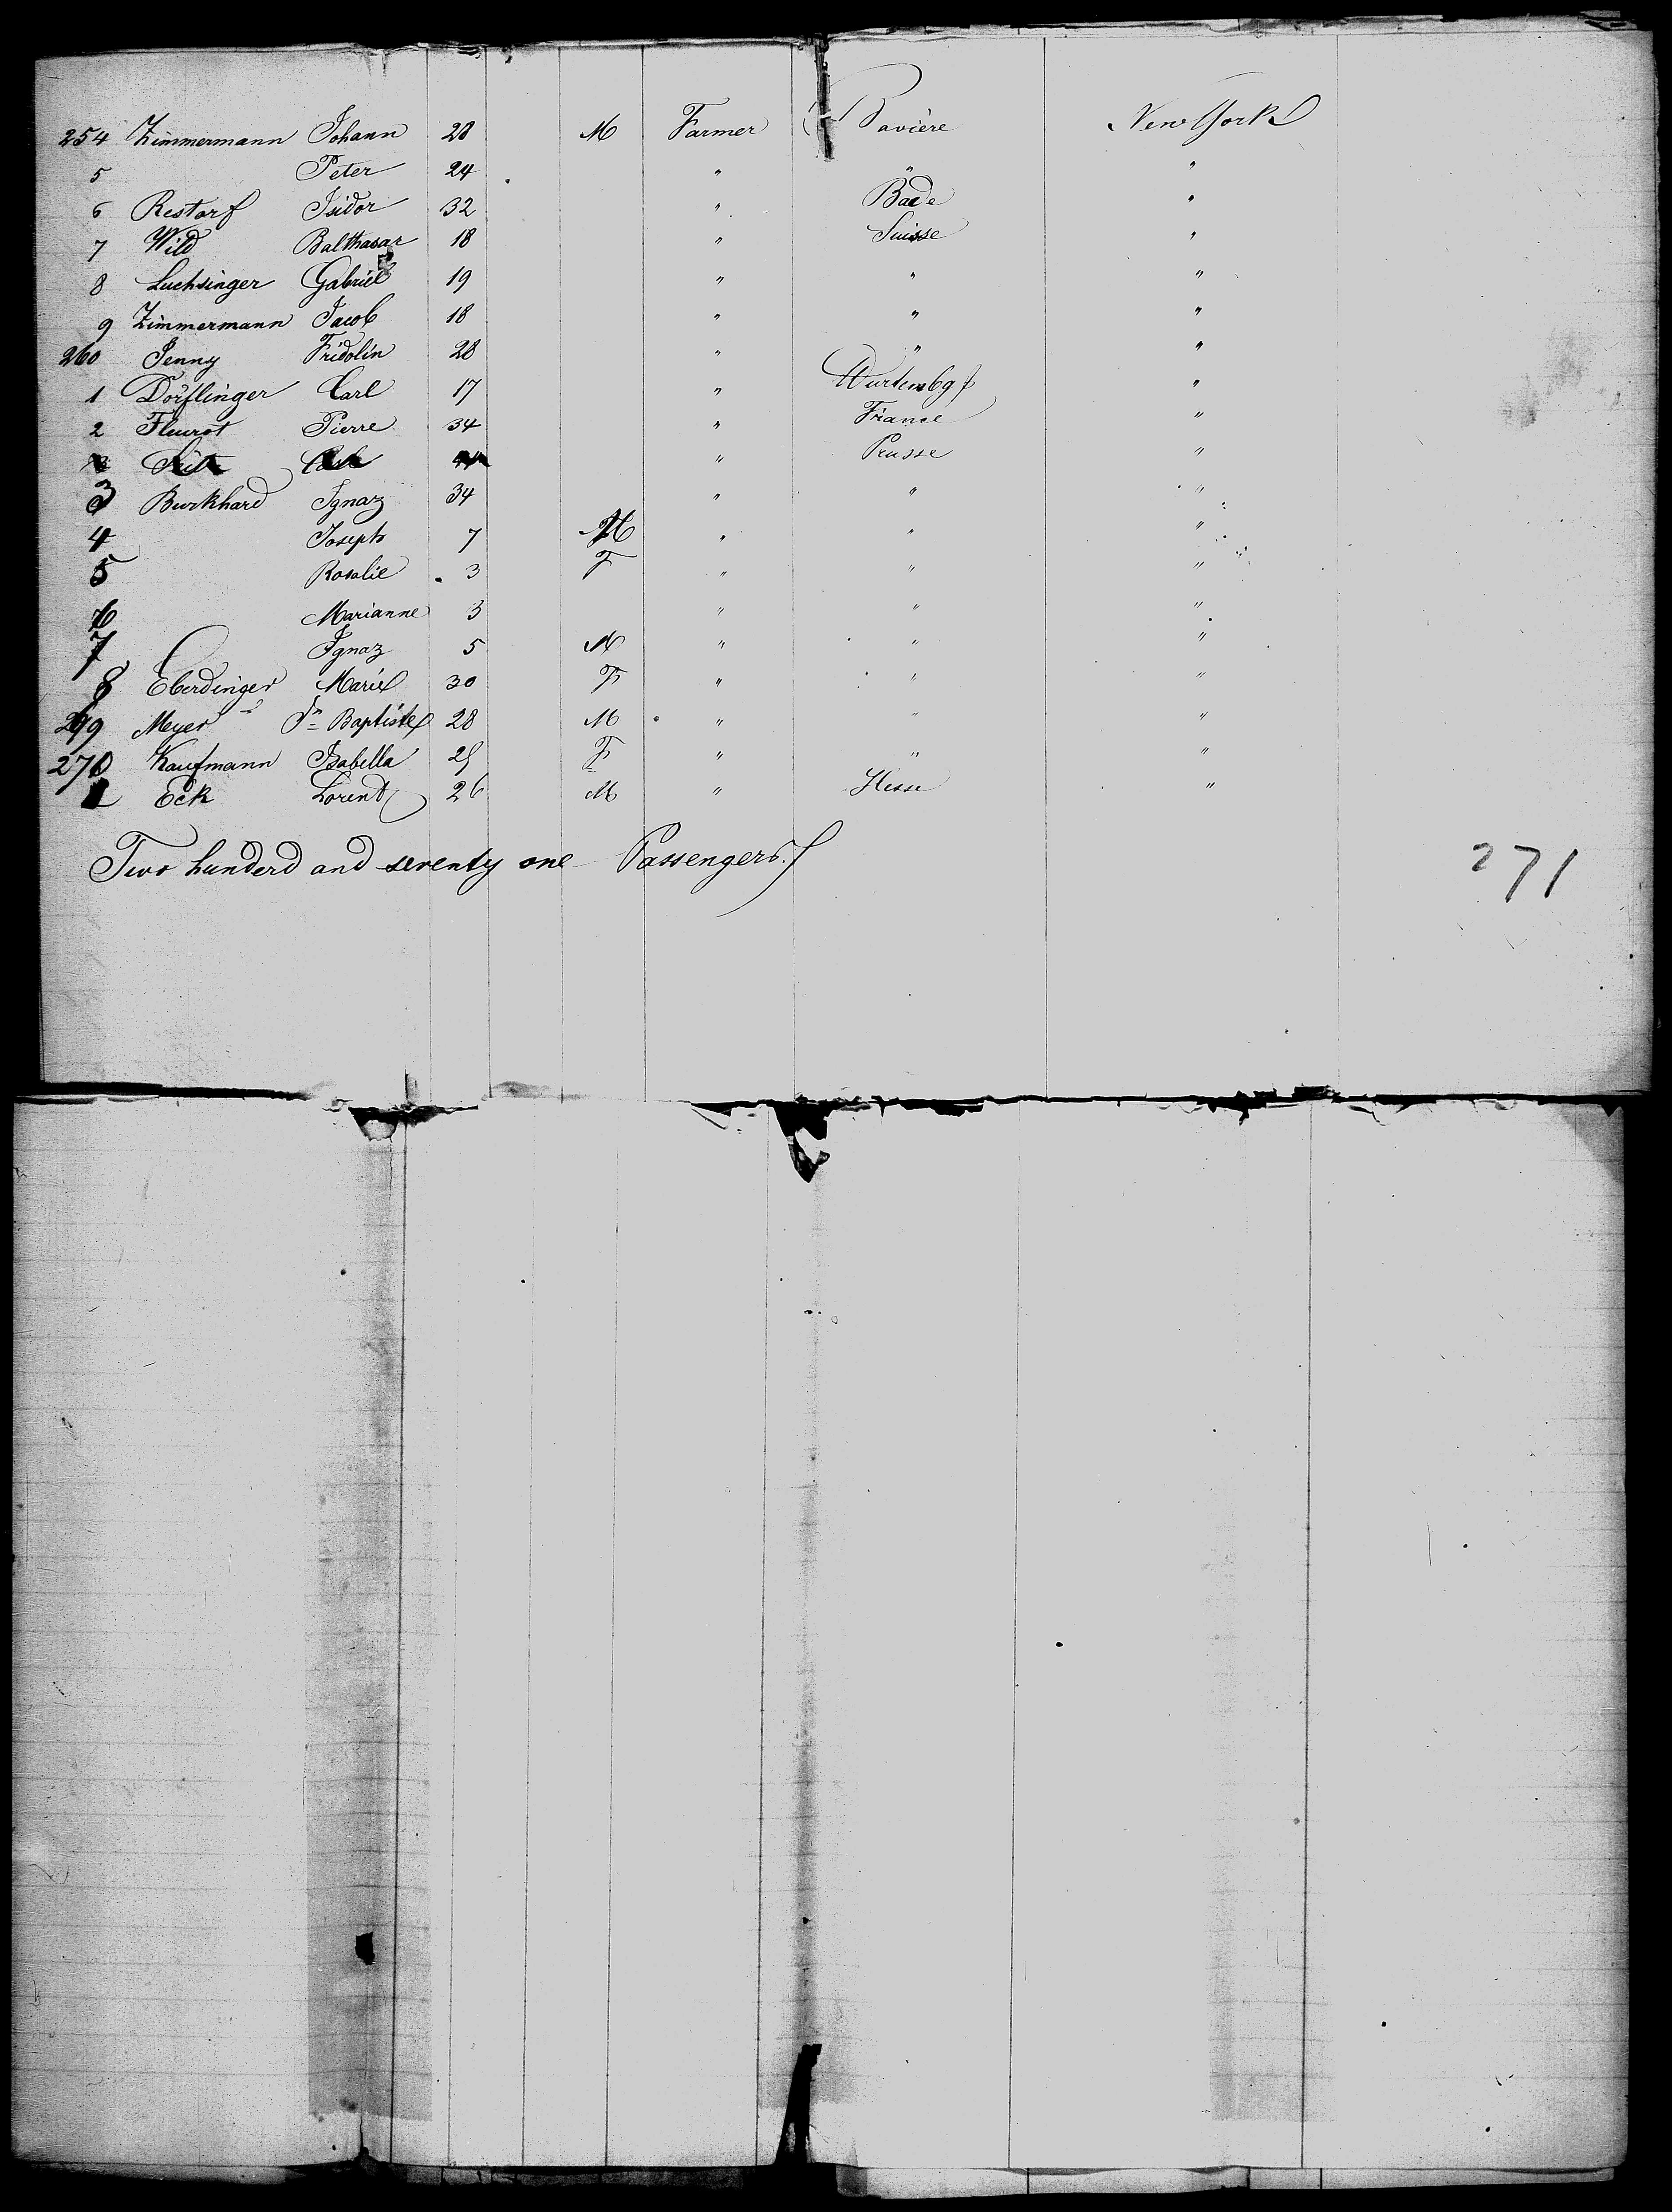 254 Zimmermann Johann 28 M Farmer Bavière New York
5 Peter 24 " " "
6 Restorf Isidor 32 " Bade "
7 Wild Balthasar 18 " Suisse "
8 Luchsinger Gabriel 19 " " "
9 Zimmermann Jacob 18 " " "
260 Jenny Fridolin 28 " " "
1 Dörflinger Carl 17 " Wurtembg "
2 Fleurot Pierre 34 " France "
" Prusse "
3 Burkhard Ignaz 34 " " "
4 Joseph 7 M " " "
5 Rosalie 3 F " " "
6 Marianne 3 " " "
7 Ignaz 5 M " " "
8 Eberdinger Marie 30 F " " "
269 Meyer Jn Baptiste 28 M " " "
270 Kaufmann Isabella 25 F " " "
1 Eck Lorent 26 M " Hesse "
Two hunderd and seventy one Passengers.
271